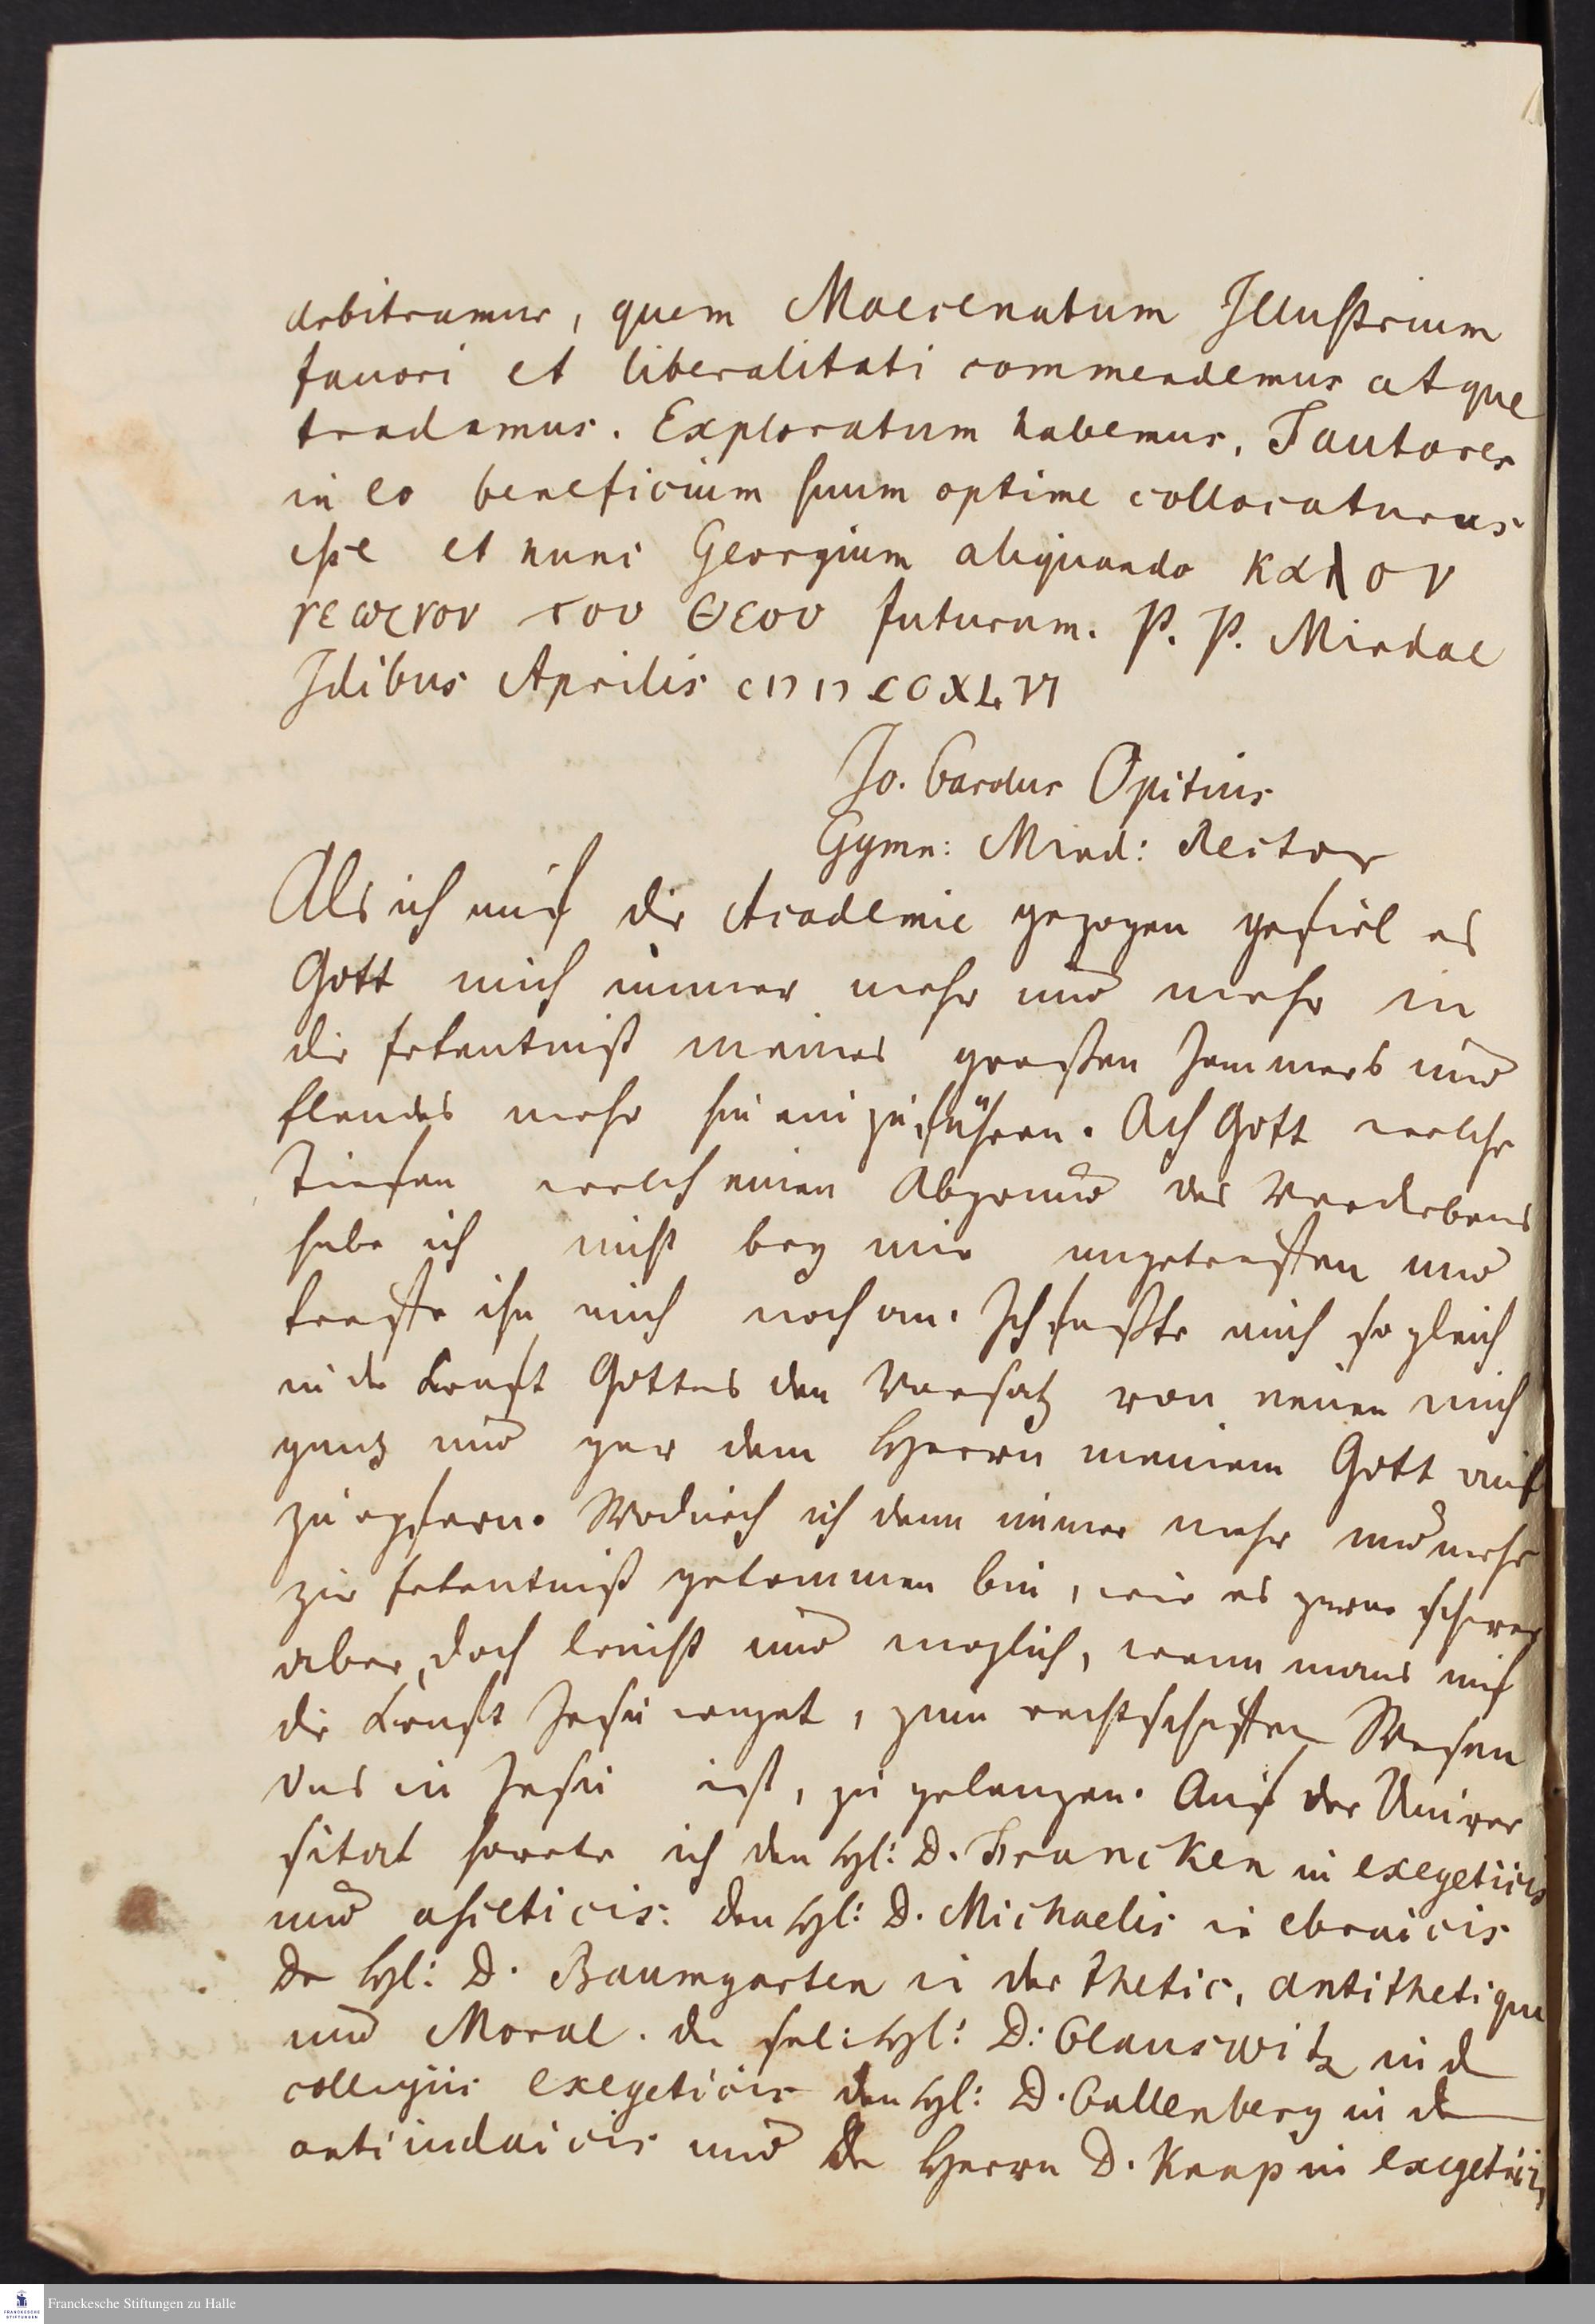 arbitramur, quem Maecenatum Illustrium
favori et liberalitati commendemus atque
tradamus. Exploratum habemus, Fautores
in eo beneficium suum optime collocaturos
esse et hunc Georgium aliquando καλον
γεωργον του Θεου futurum. P. P. Mindae
Idibus Aprilis CIↃIↃCCXLVI
Jo. Carolus Opitius
Gymn: Mind: Rector
Als ich auf die Academie gezogen gefiel es
Gott mich immer mehr und mehr in
die Erkentniß meines großen Jammers und
Elendes mehr hinein zu führen. Ach Gott welche
Tiefen welch einen Abgrund des Verderbens
habe ich nicht bey mir angetroffen und
treffe ihn auch noch an. Ich faßte auch so gleich
in der Kraft Gottes den Vorsatz von neuen mich
ganz und gar dem Herrn meinem Gott auf
zu opfern. Wodurch ich denn immer mehr und mehr
zur Erkentniß gekommen bin, wie es zwar schwer
aber doch leicht und moglich, wenn mans auf
die Kraft Jesu waget, zum rechtschaffen Wesen
das in Jesu ist, zu gelangen. Auf der Univer
sitat horete ich den H: D. Francken in exegeticis
und asceticis: den H: D. Michaelis in ebraicis
den H: D. Baumgarten in der thetic, antithetique
und Moral. den sel: H: D: Clauswitz in den
collegiis exegeticis den H: D. Callenberg in den
antiiudaicis und den Herrn D. Knap in exegeticis